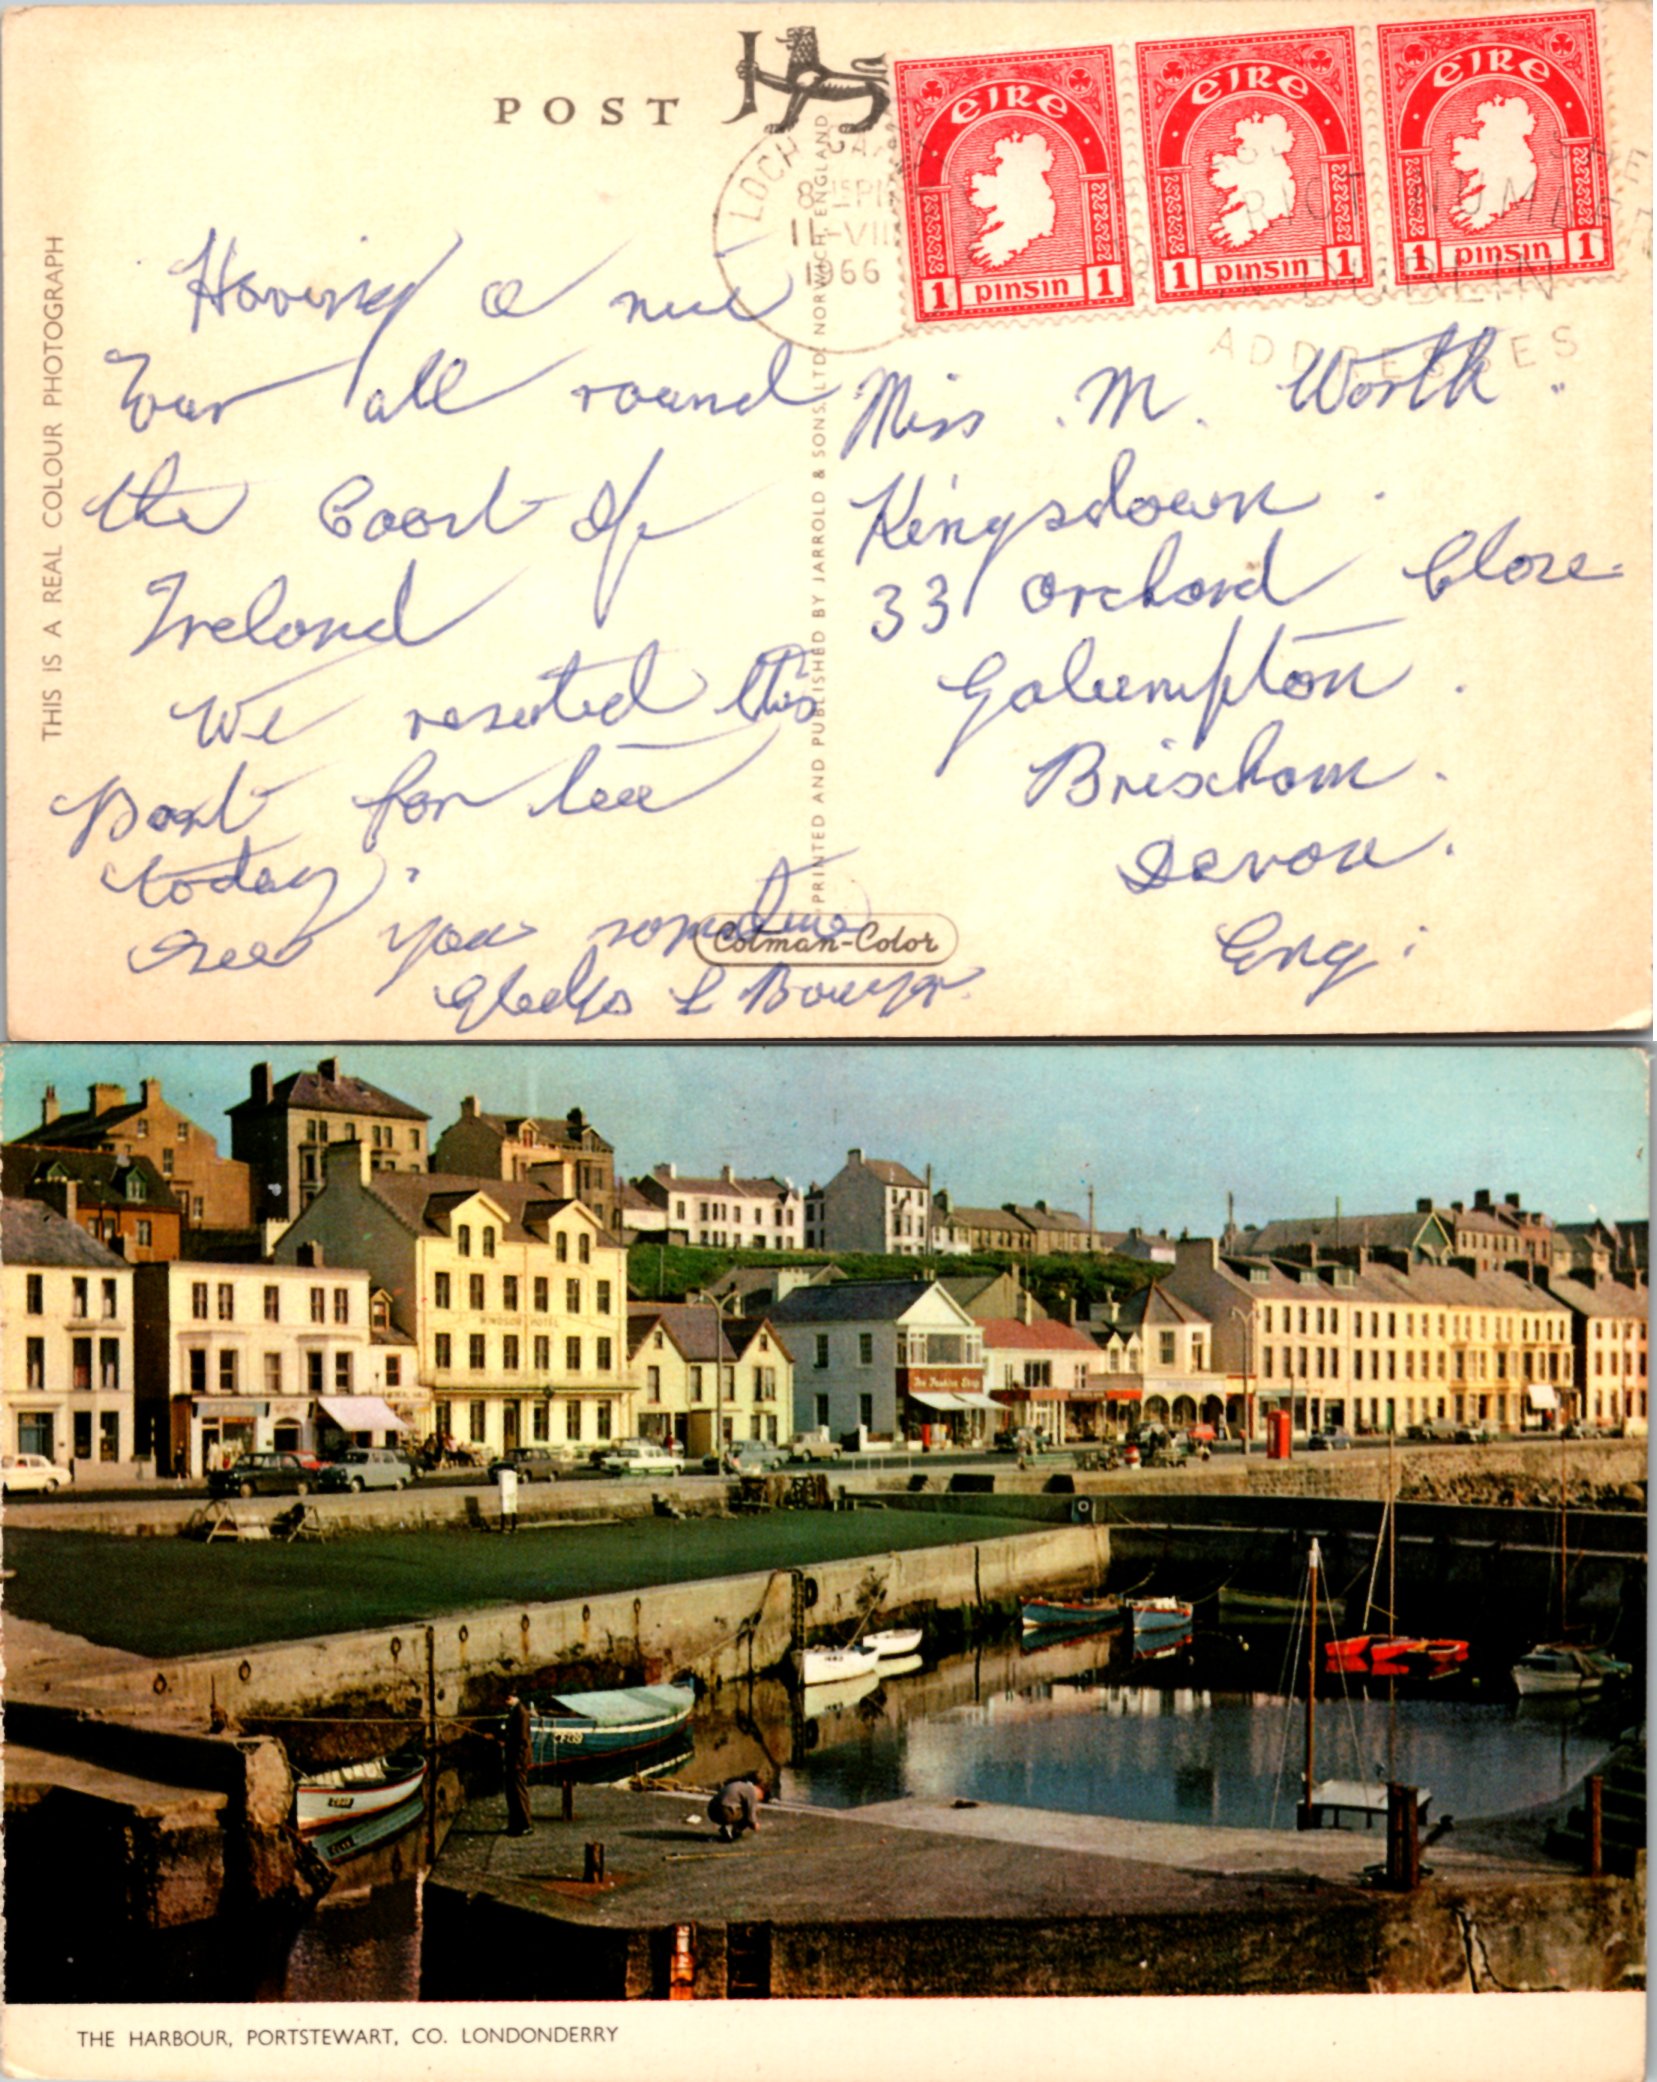 POST
THIS IS A REAL COLOUR PHOTOGRAPH
PRINTED AND PUBLISHED BY JARROLD & SONS, LTD. NORWICH, ENGLAND
LOCH
8 15 PM
11-VIII
1966
DUBLIN
ADDRESSES
ÉIRE
1 pinsin 1
ÉIRE
1 pinsin 1
ÉIRE
1 pinsin 1
Having a nice
Tour all round
the Coast of
Ireland
We visited this
Port for tea
today.
See you sometime
Gladys L
Colman-Color
Miss . M. Worth
Kingsdown
33 Orchard Close
Galumpton
Brixham
Devon.
Eng:
WINDSOR HOTEL
THE HARBOUR, PORTSTEWART, CO. LONDONDERRY